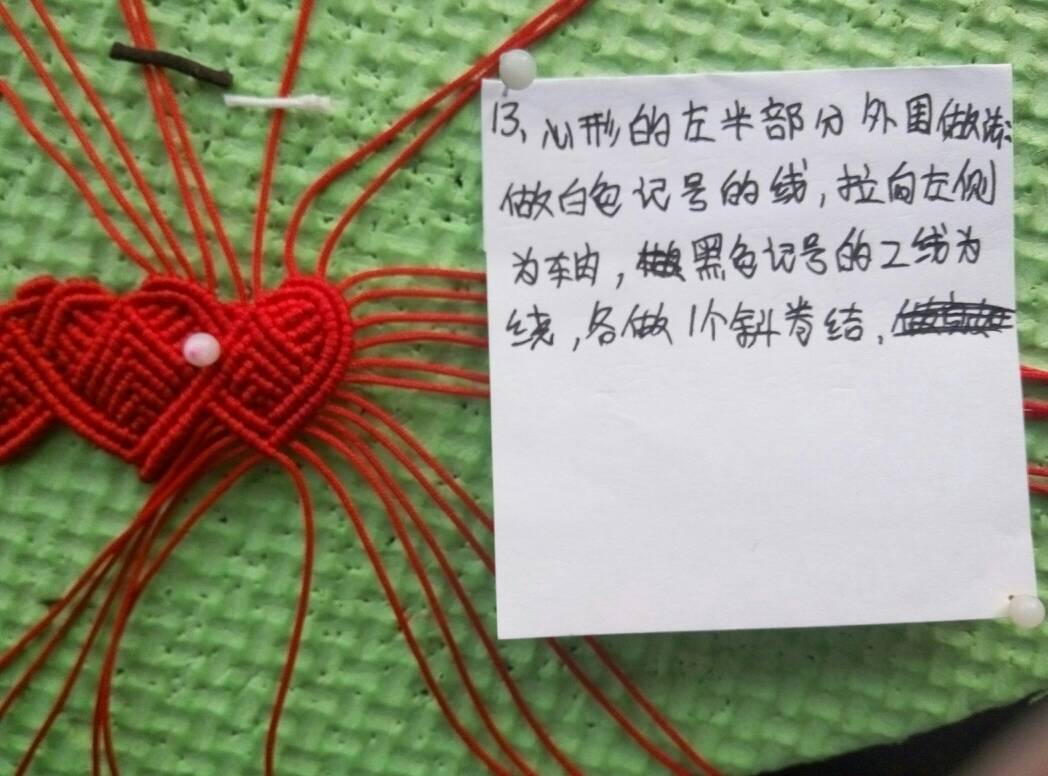 13、心形的左半部分外围做法:
做白色记号的线,拉向左侧
为轴,做黑色记号的2线为
绕,各做1个斜卷结,